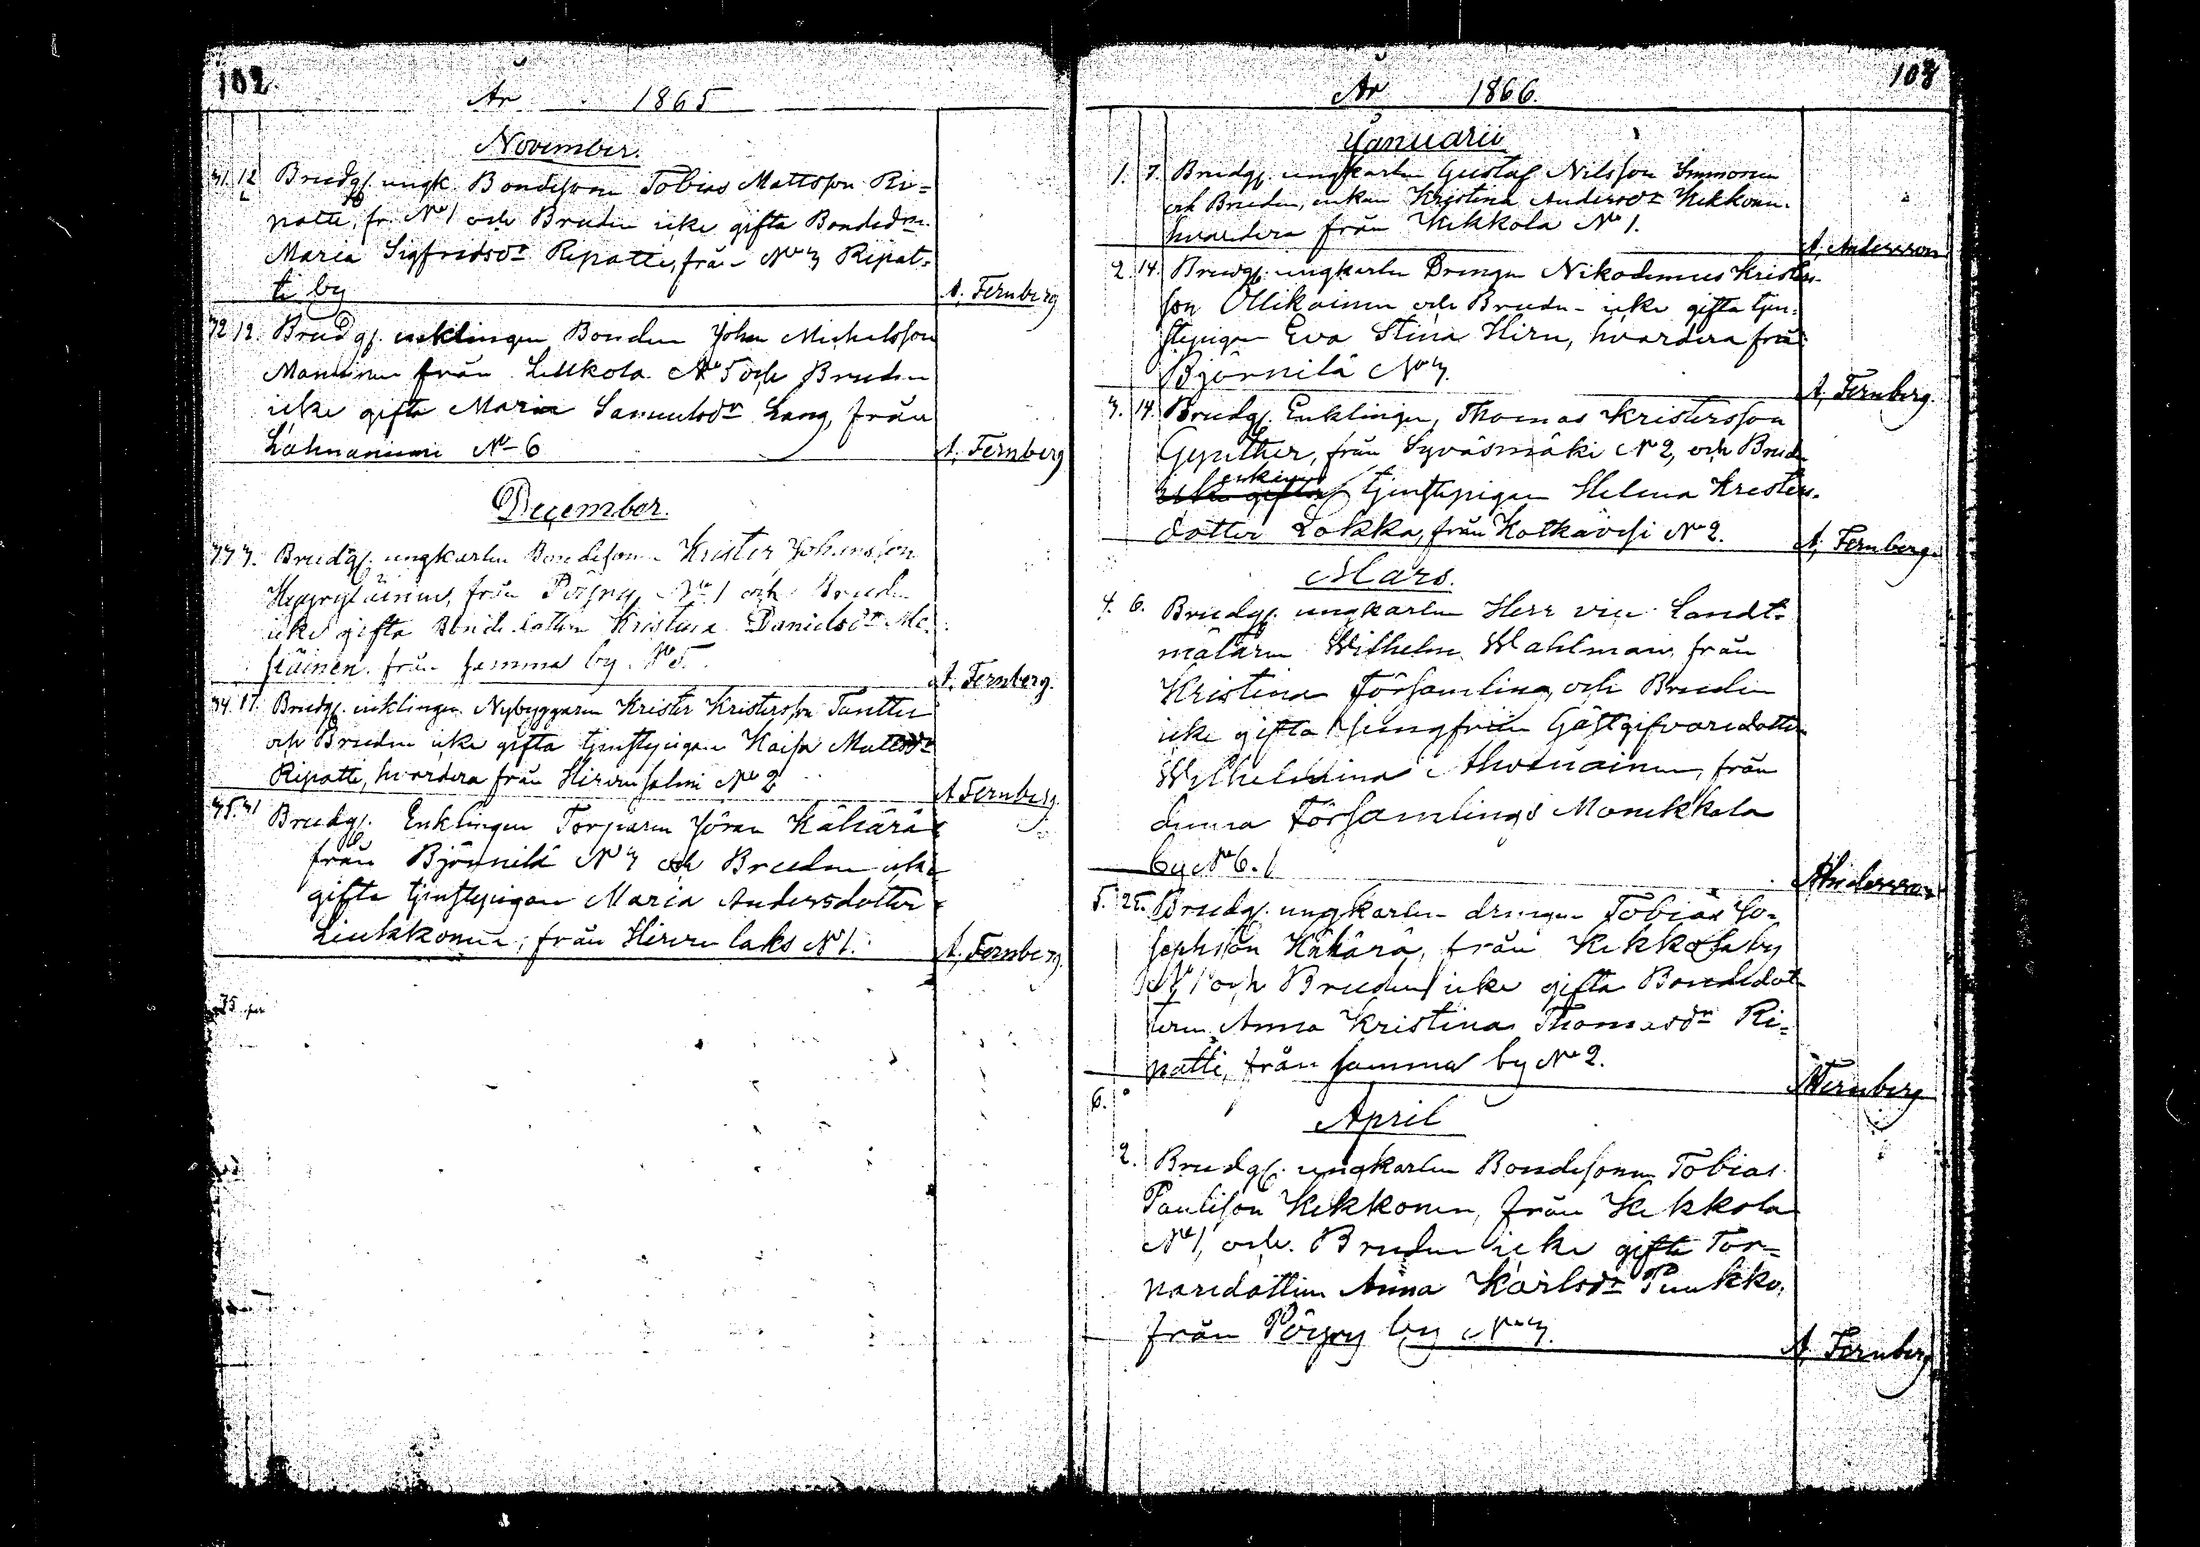 102.
År 1865
November.
31. 12 Brudg. ungk. Bondesonen Tobias Mattsson Ri=
patti, fr. No 1 och Bruden icke gifta Bondedn.
Maria Sigfridsdr Ripatti, från No 3 Ripat=
ti by
A. Fernberg
32. 12. Brudg. enklingen Bonden Johan Michelsson
Manninen från Leskola No 5 och Bruden
icke gifta Maria Samuelsdr Lang, från
Lahnaniemi No 6
A. Fernberg
December.
33. 3. Brudg. ungkarlen Bondesonen Krister Johansson
från Pöyry No 1 och Bruden
icke gifta Bondedottern Kristina Danielsdr
från samma by No 5.
A. Fernberg.
34. 17. Brudg. enklingen Nybyggaren Krister Kristersson Tanttu
och Bruden icke gifta tjenstepigan Kaisa Matsdr
Ripatti, hvardera från Hirvensalmi No 2
A Fernberg.
35. 31 Brudg. Enklingen Torparen Jöran Kähärä
från Björnilä No 3 och Bruden icke
gifta tjenstepigan Maria Andersdotter
Liukkonen, från Hirvenlaks No 1.
A. Fernberg.
35 par
103
År 1866.
Januarii
1. 7. Brudg. ungkarlen Gustaf Nilsson Immonen
och Bruden, enkan Kristina Andersdr Kekkonen.
hvardera från Kekkola No 1.
A. Andersson
2. 14. Brudg. ungkarlen Drengen Nikodemus Krister-
son Ollikainen och Bruden icke gifta tjen=
stepigan Eva Stina Hirn, hvardera från
Björnilä No 3.
A. Fernberg.
3. 14. Brudg. Enklingen, Thomas Kristersson
Gynther, från Syväsmäki No 2, och Bruden
enkan
icke gifta tjenstepigan Helena Kristers-
dotter Lokka, från Kotkavesi No 2.
A. Fernberg.
Mars.
4. 6. Brudg. ungkarlen Herr vice Landt=
mätaren Wilhelm Wahlman, från
Kristina Församling, och Bruden
icke gifta Jungfrun Gästgifvaredottern
Wilhelmina Ahonainen, från
denna Församlings Monikkala
by No 6.
Andersson
5. 25. Brudg. ungkarlen drengen Tobias Jo=
sephson Kähärä, från Kekkola by
No 1 och Bruden icke gifta Bondedot=
tern Anna Kristina Thomasdr Ri=
patti, från samma by No 2.
A Fernberg
6.
April
2. Brudg. ungkarlen Bondesonen Tobias
Paulison Kekkonen, från Kekkola
No 1, och Bruden icke gifta Tor=
paredottern Anna Karlsdr Puukko,
från Pöyry by No 3.
A. Fernberg